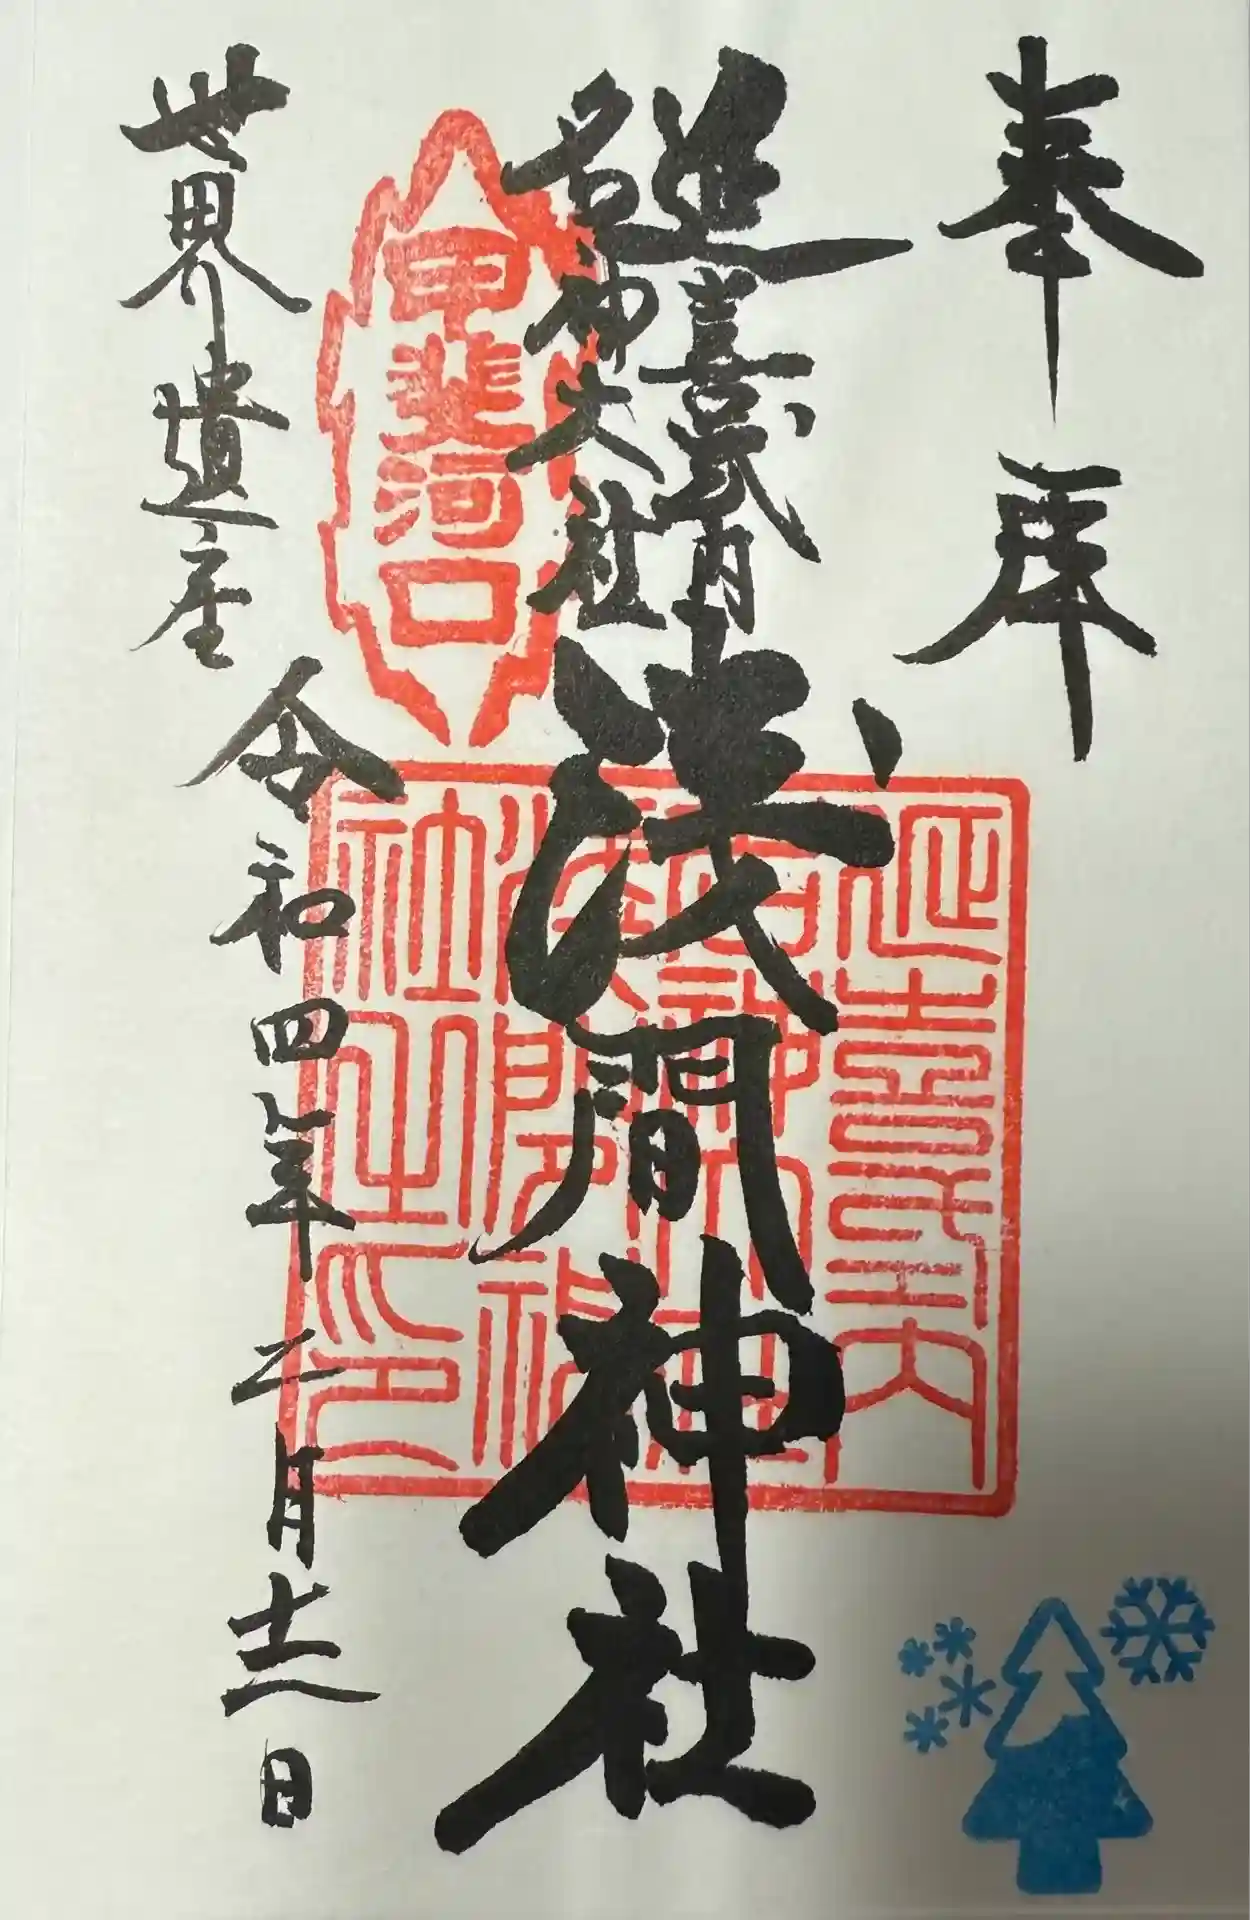 奉拝
延喜式内
名神大社
浅間神社
甲斐河口
延喜式内
名神大社
浅間神
社之印
世界遺産
令和四年二月十二日